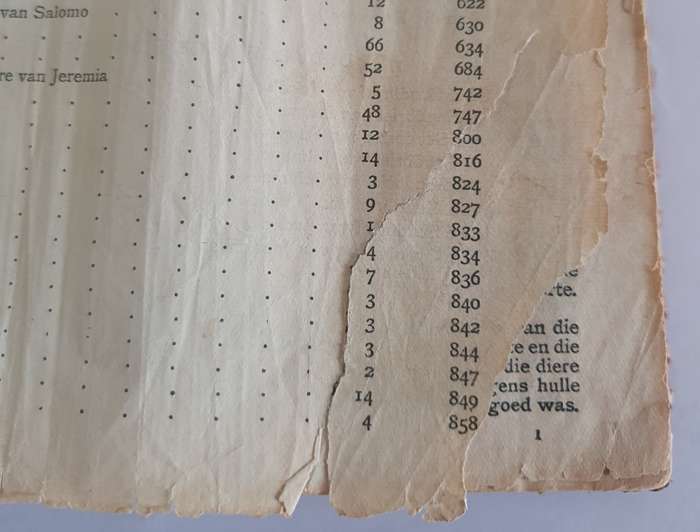 12 622
van Salomo
8 630
66 634
52 684
re van Jeremia
5 742
48 747
12 800
14 816
3 824
9 827
1 833
4 834
7 836
3 840
3 842
3 844
2 847
14 849
4 858
rte.
an die
te en die
die diere
gens hulle
goed was.
1